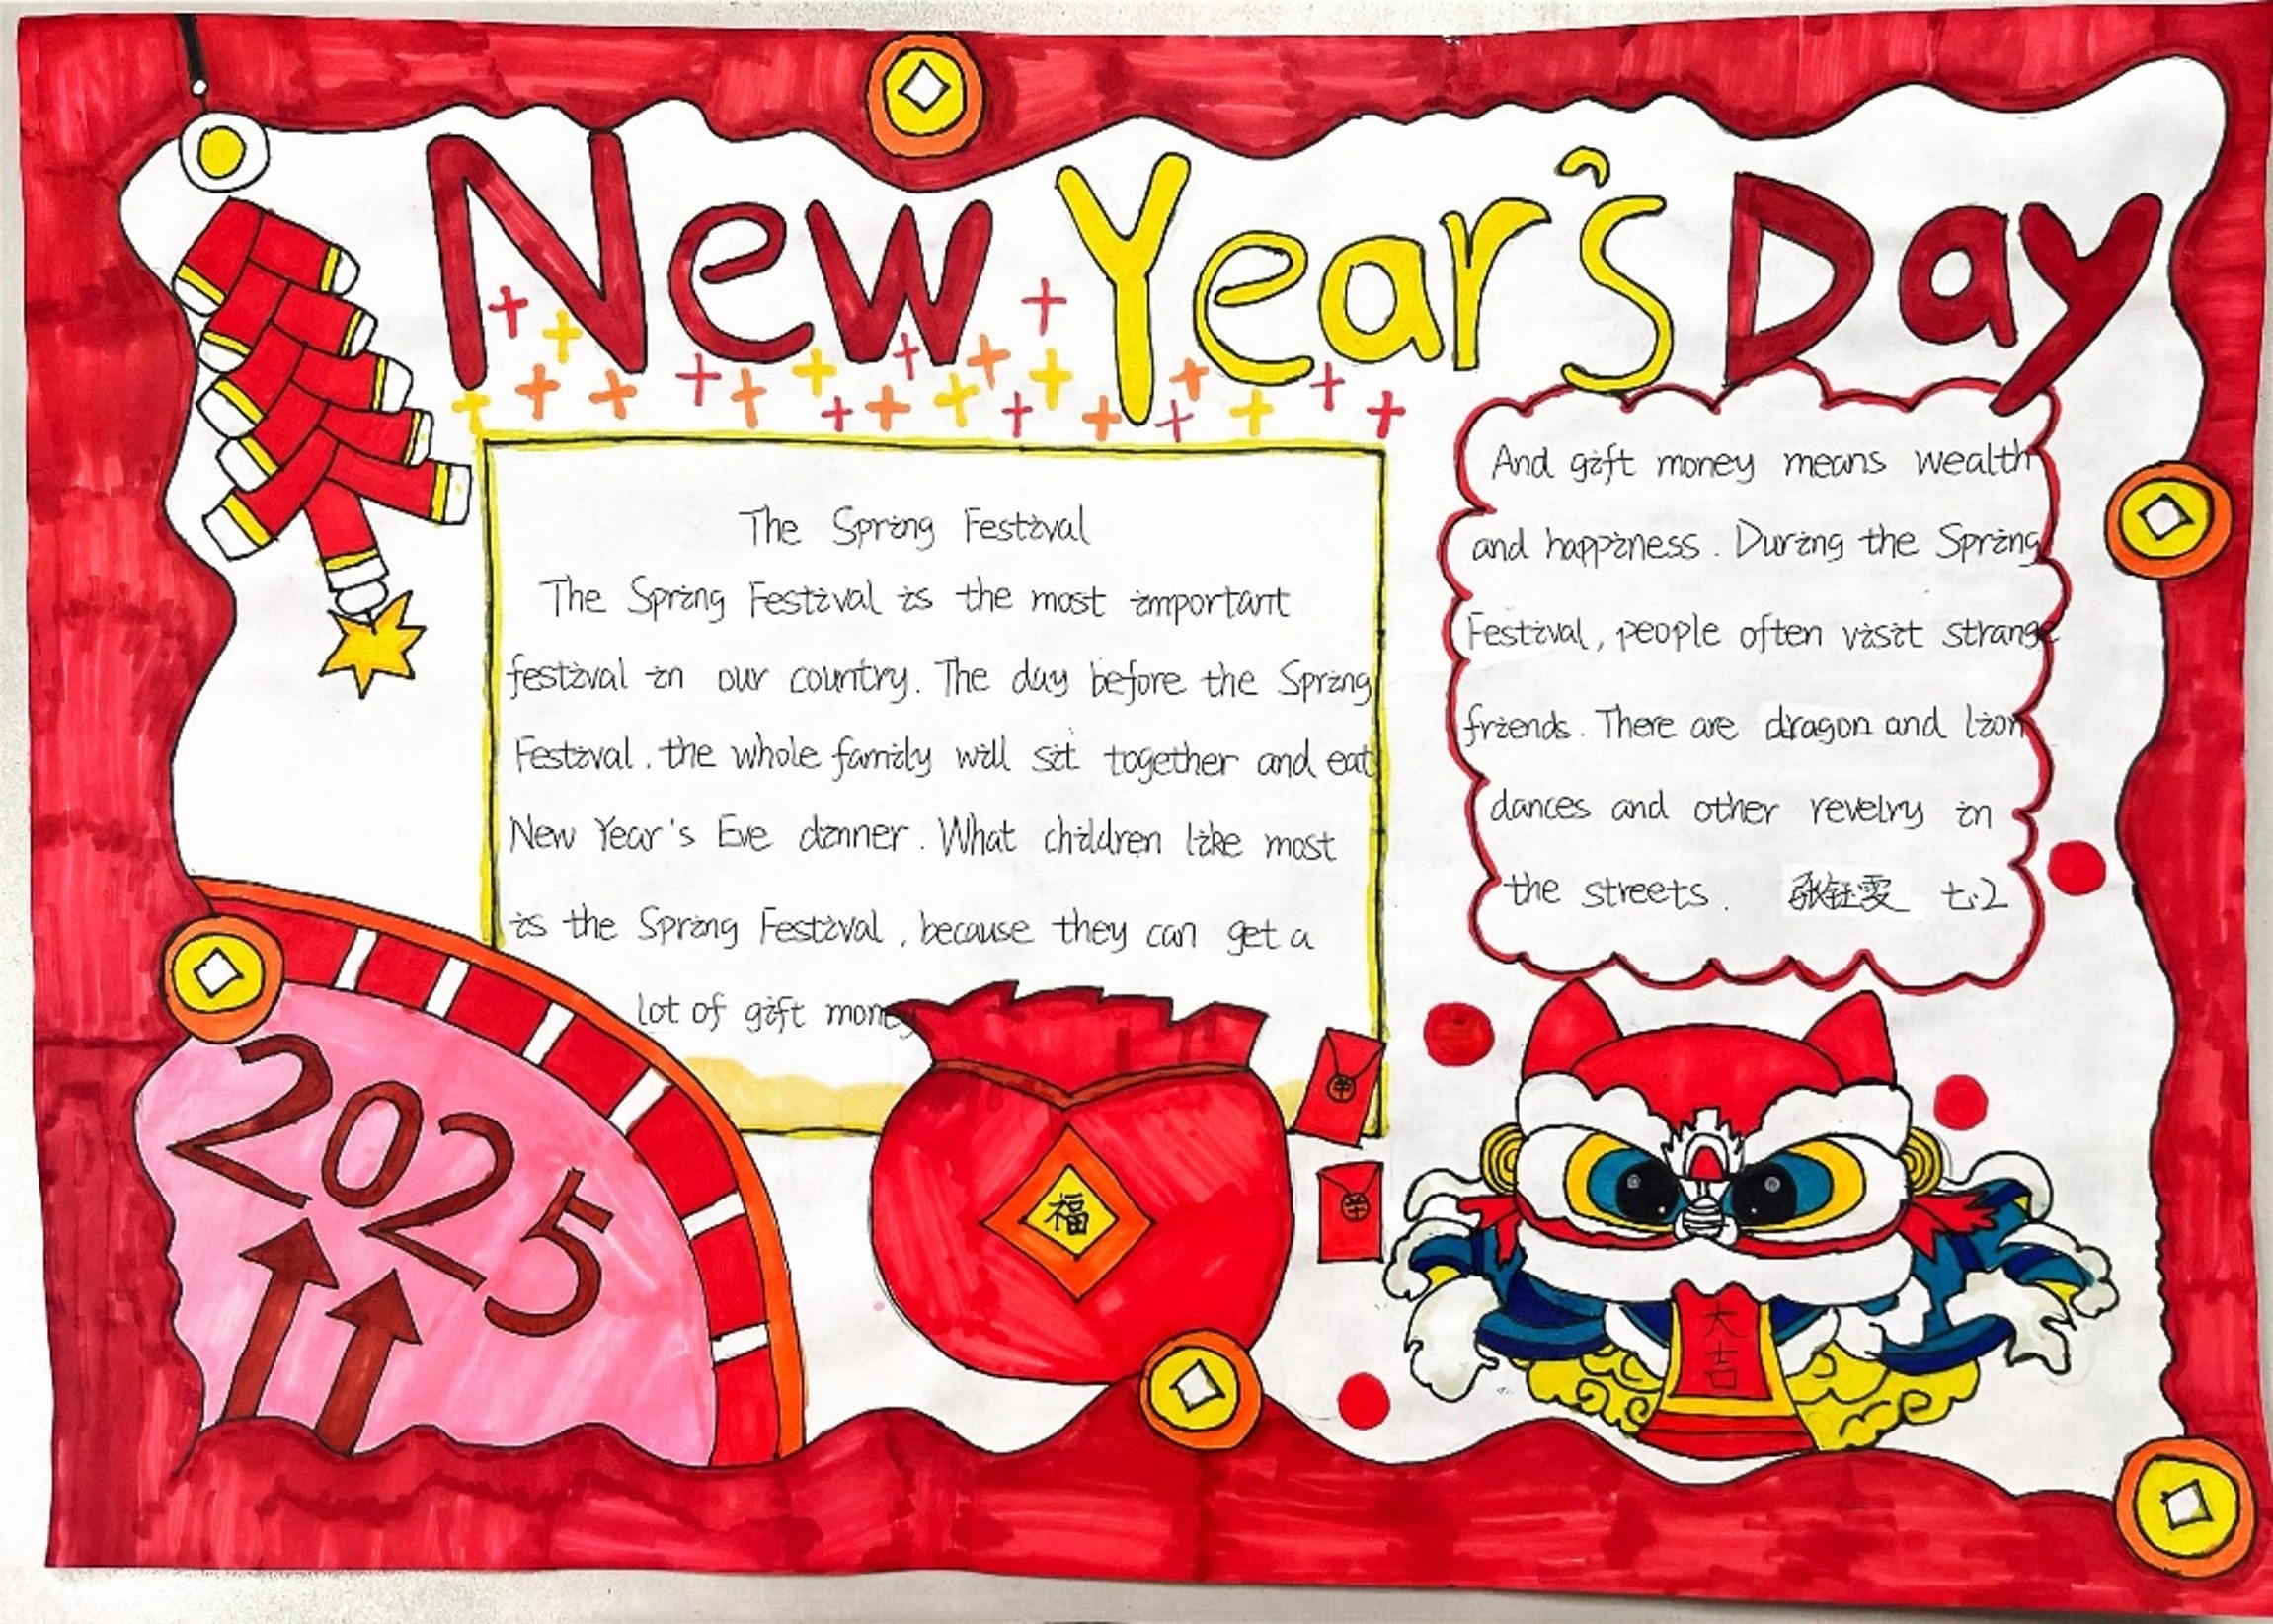 New Year's Day
The Spring Festival
The Spring Festival is the most important
festival in our country. The day before the Spring
Festival. the whole family will sit together and eat
New Year's Eve dinner. What children like most
is the Spring Festival, because they can get a
lot of gift money
And gift money means wealth
and happiness. During the Spring
Festival, people often visit strange
friends. There are dragon and lion
dances and other revelry in
the streets. 张钰雯 七.2
2025
福
大吉